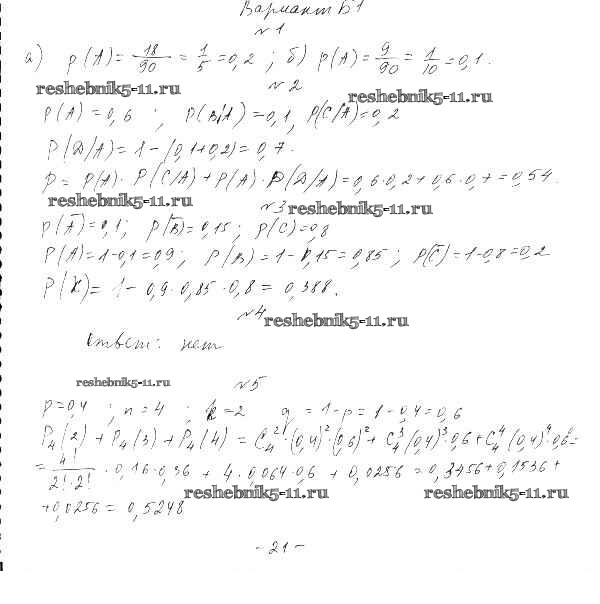 Вариант Б1
№1
а) p(A) = 18/90 = 1/5 = 0,2 ; б) p(A) = 9/90 = 1/10 = 0,1.
reshebnik5-11.ru
№2
reshebnik5-11.ru
P(A) = 0,6 ; P(B/A) = 0,1, P(C/A) = 0,2
P(D/A) = 1 - (0,1+0,2) = 0,7.
P = P(A) · P(C/A) + P(A) · P(D/A) = 0,6·0,2+0,6·0,7 = 0,54.
reshebnik5-11.ru
№3
reshebnik5-11.ru
p(A̅) = 0,1; p(B̅) = 0,15; p(C) = 0,8
P(A) = 1-0,1 = 0,9; P(B) = 1-0,15 = 0,85; p(C̅) = 1-0,8 = 0,2
P(X) = 1 - 0,9·0,85·0,8 = 0,388.
№4
reshebnik5-11.ru
Ответ: нет
reshebnik5-11.ru
№5
p=0,4 ; n=4 ; k=2 q = 1-p = 1-0,4 = 0,6
P₄(2) + P₄(3) + P₄(4) = C₄²·(0,4)²·(0,6)² + C₄³(0,4)³·0,6 + C₄⁴(0,4)⁴·0,6⁰ =
= 4!/2!·2! · 0,16·0,36 + 4·0,064·0,6 + 0,0256 = 0,3456+0,1536+
reshebnik5-11.ru
reshebnik5-11.ru
+0,0256 = 0,5248
- 21 -